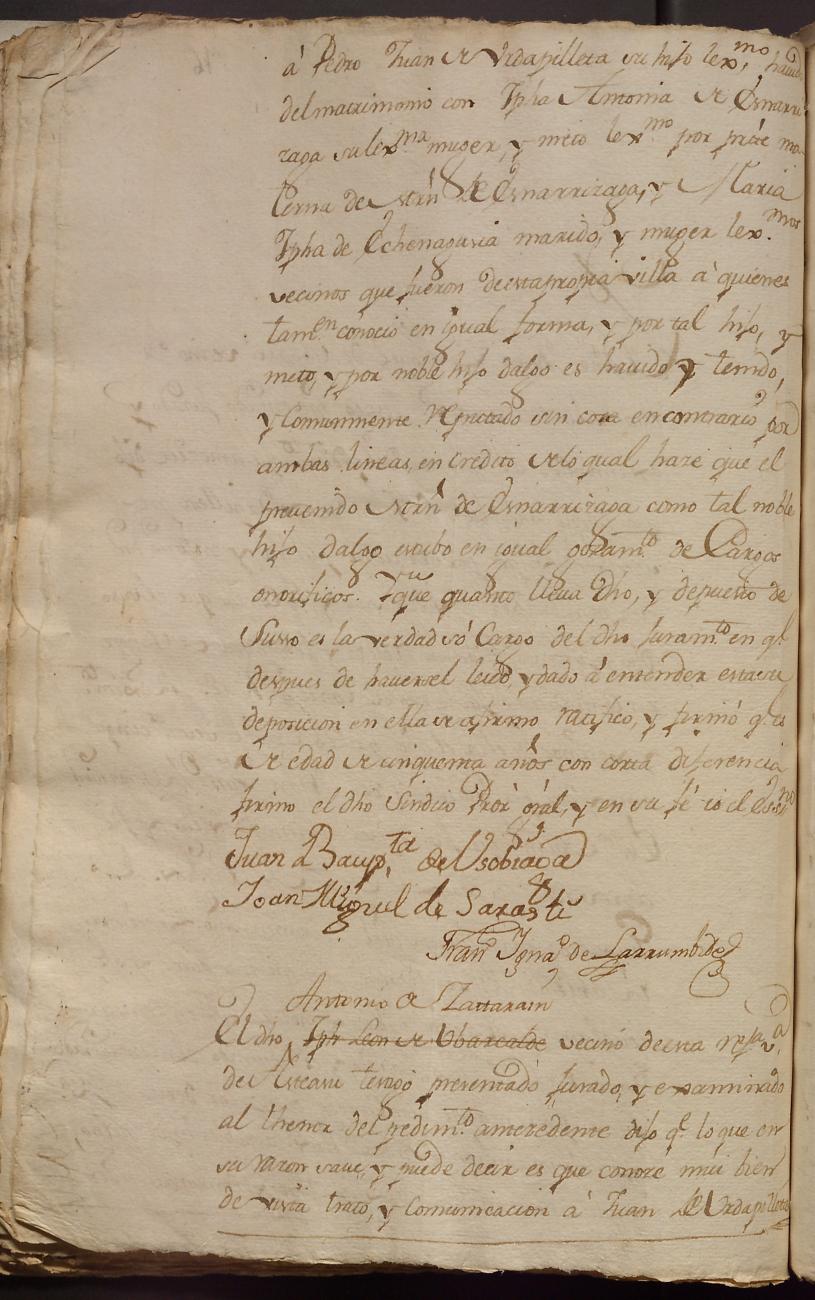 à Pedro Juan de Urdapilleta su hijo lex.mo, havido
del matrimonio con Jpha Antonia de Esnarri
zaga su lex.ma muger, y nieto lex.mo por parte ma
terna de Astên de Esnarrizaga, y Maria
Jpha de Echenagusia marido, y muger lex.mos
vecinos que fueron de esta propia villa à quienes
tam.en conocio en igual forma, y por tal hijo, y
nieto, y por noble hijo dalgo es havido y tenido,
y Comunmente Reputado sin cosa en contrario por
ambas lineas, en Credito de lo qual haze que el
prevenido Astên de Esnarrizaga como tal noble
hijo dalgo estubo en igual gozam.to de Cargos
onorificos. Y que quanto lleva dho, y depuesto de
Suso es la verdad só Cargo del dho juram.to en q.l
despues de haversel leido, y dado à entender esta su
deposicion en ella se afirmo ratifico, y firmó q.e es
de edad de cinquenta años con corta diferencia
firmo el dho Sindico Prôr gral, y en su fé io el Ess.no
Juan Baup.ta de Usobiaga
Joan Miguel de Sarasti
Fran.co Igna.o de Larrumbide
Antonio de Zattarain
El dho Jph Leon de Ubarcalde vecino de esta refd.a v.a
de testigo presentado jurado, y examinado
al thenor del pedim.to antecedente dijo q.e lo que en
su razon save, y puede decir es que conoze mui bien
de vista trato, y Comunicacion à Juan de Urdapilleta